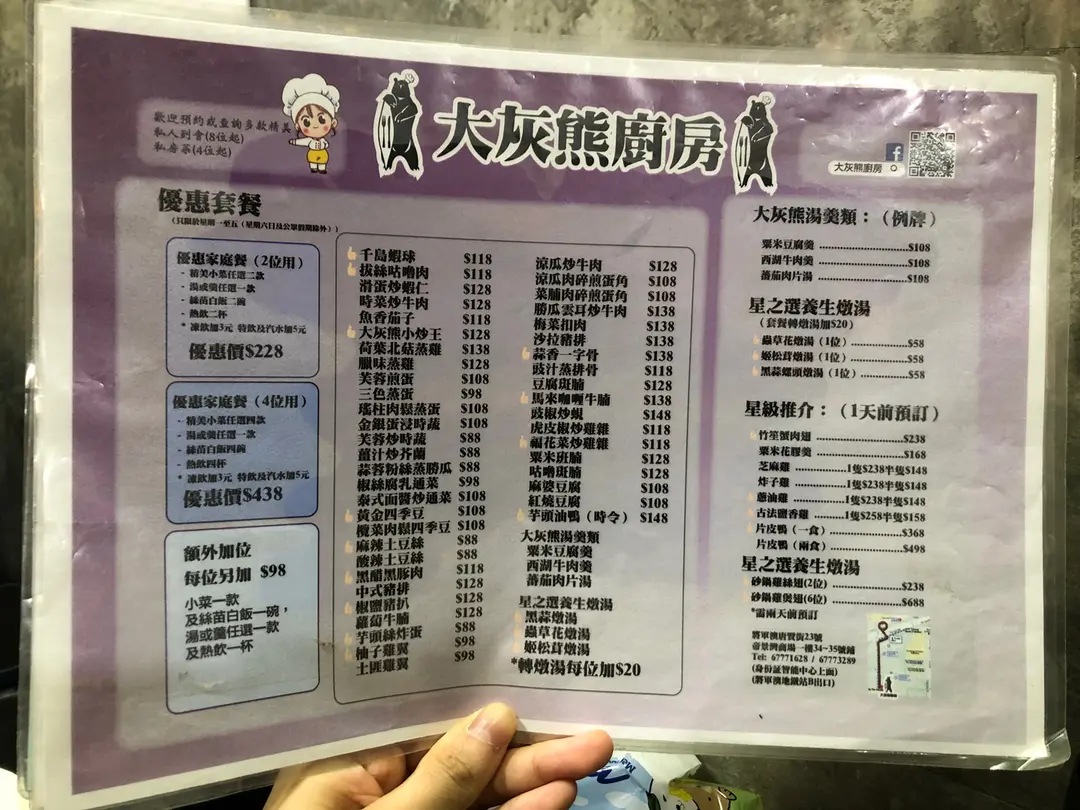 歡迎預約或查詢多款精美
私人到會(8位起)
私房菜(4位起)
大灰熊廚房
大灰熊廚房
優惠套餐
(只限於星期一至五（星期六日及公眾假期除外）)
優惠家庭餐（2位用）
- 精美小菜任選二款
- 湯或羹任選一款
- 絲苗白飯二碗
- 熱飲二杯
* 凍飲加3元 特飲及汽水加5元
優惠價$228
優惠家庭餐（4位用）
- 精美小菜任選四款
- 湯或羹任選一款
- 絲苗白飯四碗
- 熱飲四杯
* 凍飲加3元 特飲及汽水加5元
優惠價$438
額外加位
每位另加 $98
小菜一款
及絲苗白飯一碗，
湯或羹任選一款
及熱飲一杯
千島蝦球 $118
拔絲咕嚕肉 $118
滑蛋炒蝦仁 $128
時菜炒牛肉 $128
魚香茄子 $118
大灰熊小炒王 $128
荷葉北菇蒸雞 $138
臘味蒸雞 $128
芙蓉煎蛋 $108
三色蒸蛋 $98
瑤柱肉鬆蒸蛋 $108
金銀蛋浸時蔬 $108
芙蓉炒時蔬 $88
薑汁炒芥蘭 $88
蒜蓉粉絲蒸勝瓜 $88
椒絲腐乳通菜 $98
泰式面醬炒通菜 $108
黃金四季豆 $108
欖菜肉鬆四季豆 $108
麻辣土豆絲 $88
酸辣土豆絲 $88
黑醋黑豚肉 $118
中式豬排 $128
椒鹽豬扒 $128
蘿蔔牛腩 $128
芋頭絲炸蛋 $88
柚子雞翼 $98
土匪雞翼 $98
涼瓜炒牛肉 $128
涼瓜肉碎煎蛋角 $108
菜脯肉碎煎蛋角 $108
勝瓜雲耳炒牛肉 $138
梅菜扣肉 $138
沙拉豬排 $138
蒜香一字骨 $138
豉汁蒸排骨 $118
豆腐斑腩 $128
馬來咖喱牛腩 $138
豉椒炒蜆 $148
虎皮椒炒雞雜 $118
福花菜炒雞雜 $118
粟米斑腩 $128
咕嚕斑腩 $128
麻婆豆腐 $108
紅燒豆腐 $108
芋頭油鴨（時令） $148
大灰熊湯羹類
粟米豆腐羹
西湖牛肉羹
蕃茄肉片湯
星之選養生燉湯
黑蒜燉湯
蟲草花燉湯
姬松茸燉湯
*轉燉湯每位加$20
大灰熊湯羹類：（例牌）
粟米豆腐羹 ........................$108
西湖牛肉羹 ........................$108
蕃茄肉片湯 ........................$108
星之選養生燉湯
（套餐轉燉湯加$20）
蟲草花燉湯（1位）..................$58
姬松茸燉湯（1位）..................$58
黑蒜螺頭燉湯（1位）................$58
星級推介：（1天前預訂）
竹笙蟹肉翅 ........................$238
粟米花膠羹 ........................$168
芝麻雞 ..............1隻$238半隻$148
炸子雞 ..............1隻$238半隻$148
蔥油雞 ..............1隻$238半隻$148
古法鹽香雞 ..........1隻$258半隻$158
片皮鴨（一食）.....................$368
片皮鴨（兩食）.....................$498
星之選養生燉湯
砂鍋雞絲翅(2位) ...................$238
砂鍋雞煲翅(6位) ...................$688
*需兩天前預訂
將軍澳唐賢街23號
帝景灣商場一樓34-35號鋪
Tel: 67771628 / 67773289
(身份証智能中心上面)
(將軍澳地鐵站B出口)